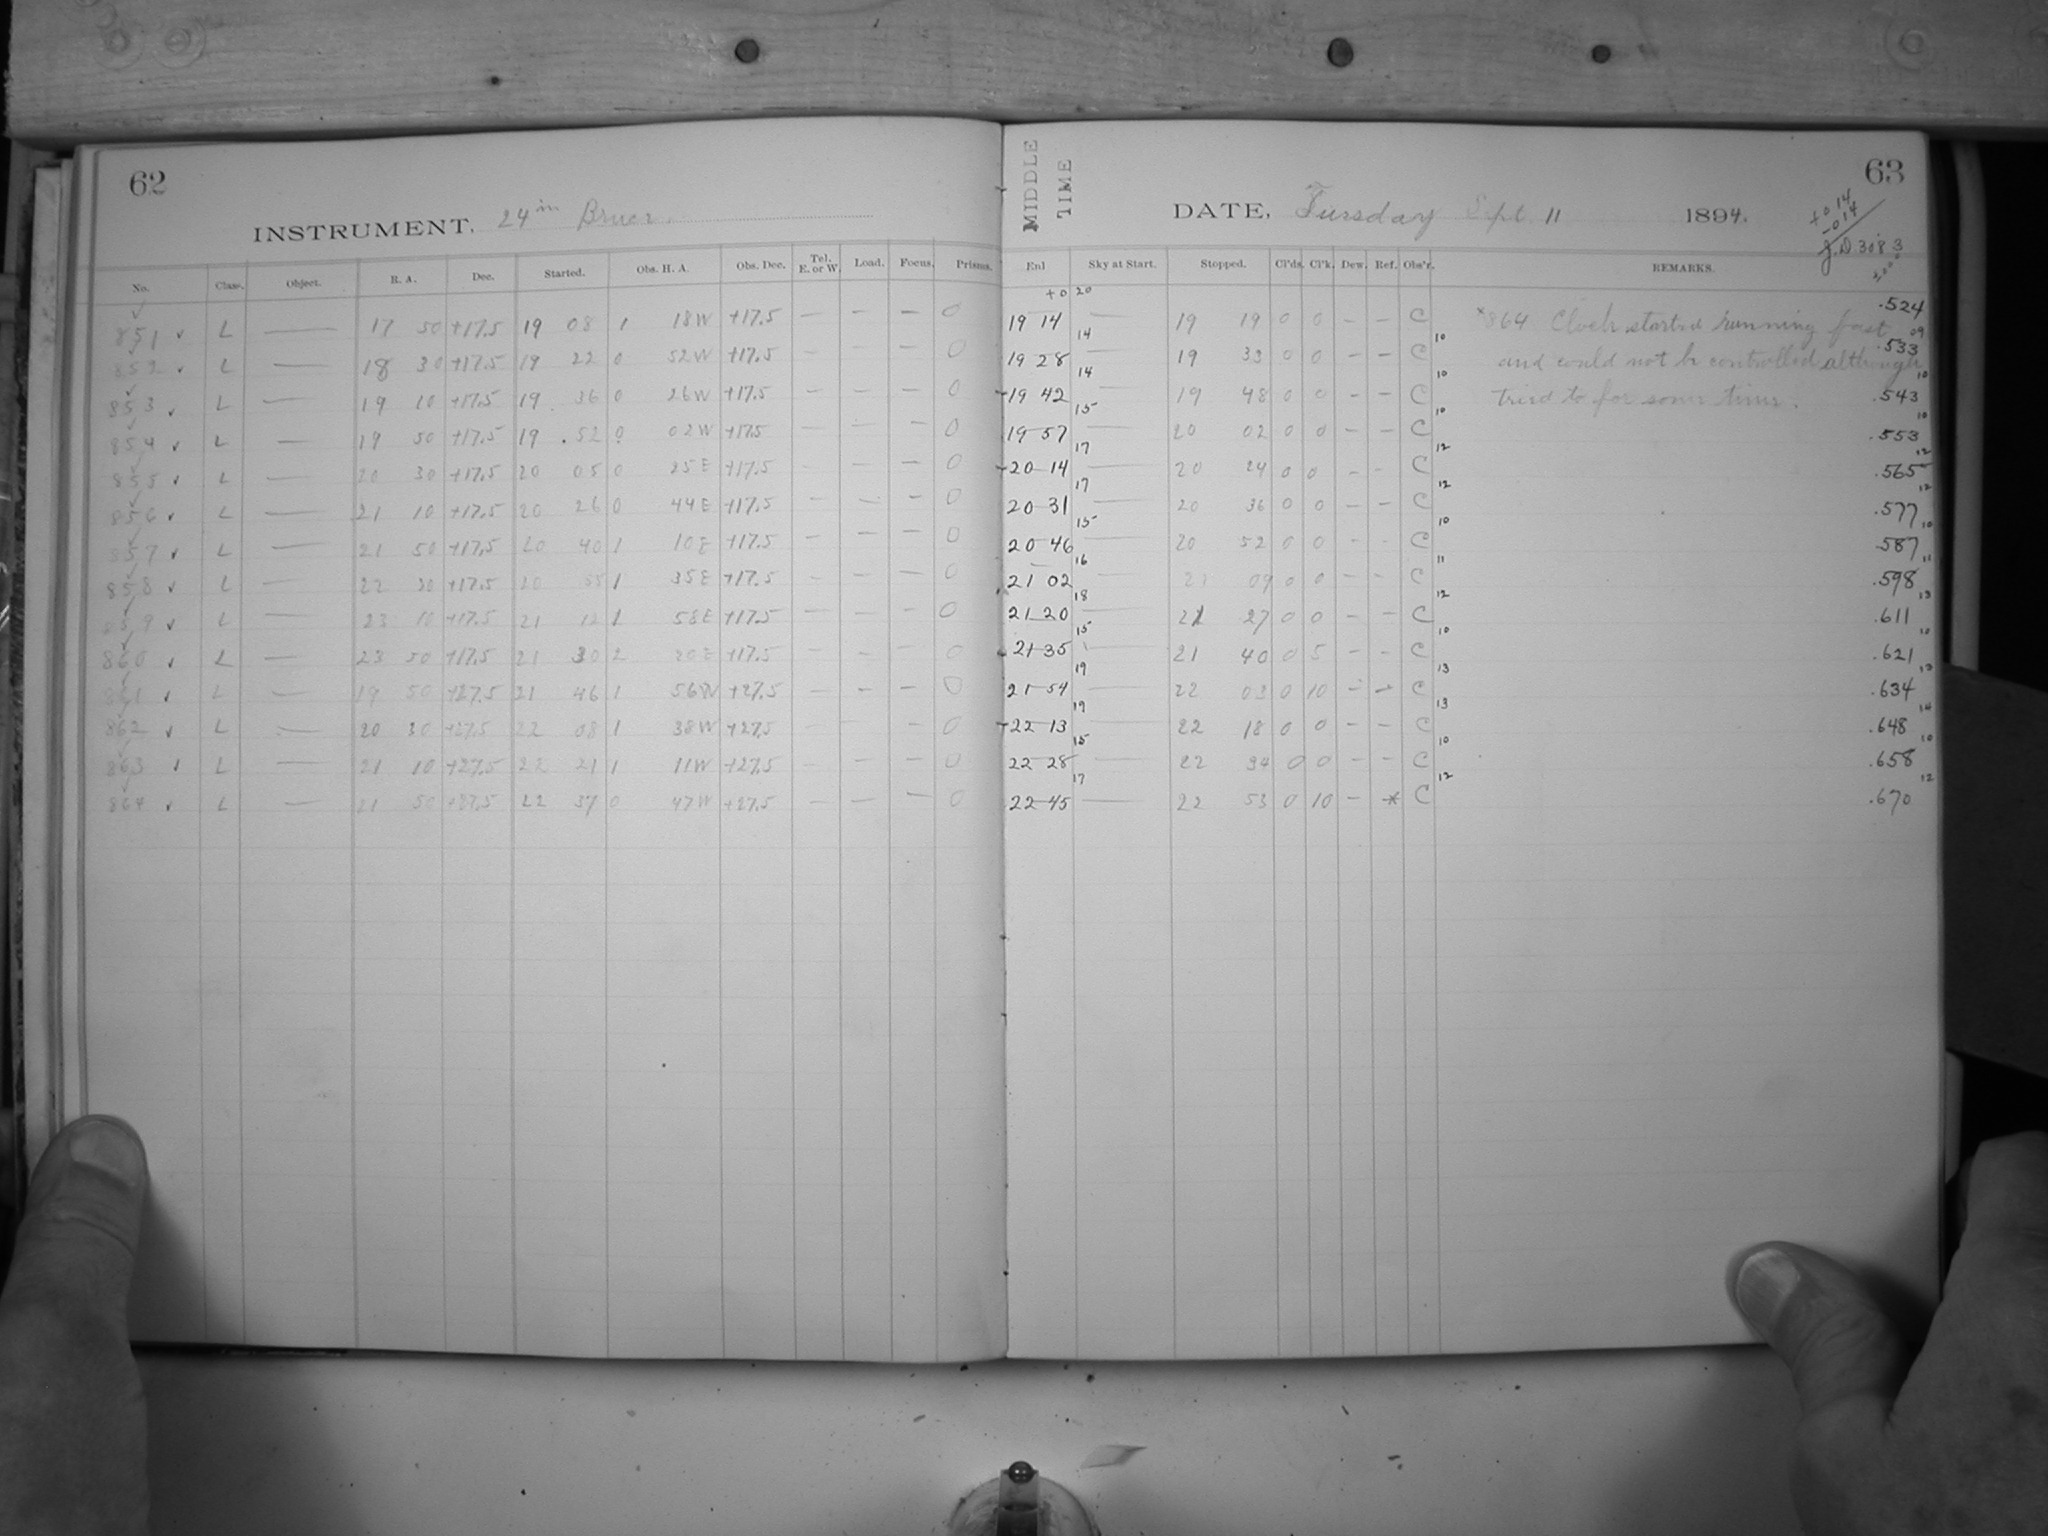 62
INSTRUMENT, 24 in Bruce.
No. Class. Object. R. A. Dec. Started. Obs. H. A. Obs. Dec. Tel. E. or W. Load. Focus. Prisms.
851 L — 17 50 +17.5 19 08 1 18W +17.5 — — — 0
852 L — 18 30 +17.5 19 22 0 52W +17.5 — — — 0
853 L — 19 10 +17.5 19 36 0 26W +17.5 — — — 0
854 L — 19 50 +17.5 19 52 0 02W +17.5 — — — 0
855 L — 20 30 +17.5 20 05 0 25E +17.5 — — — 0
856 L — 21 10 +17.5 20 26 0 44E +17.5 — — — 0
857 L — 21 50 +17.5 20 40 1 10E +17.5 — — — 0
858 L — 22 30 +17.5 20 55 1 35E +17.5 — — — 0
859 L — 23 10 +17.5 21 12 1 58E +17.5 — — — 0
860 L — 23 50 +17.5 21 30 2 20E +17.5 — — — 0
861 L — 19 50 +27.5 21 46 1 56W +27.5 — — — 0
862 L — 20 30 +27.5 22 08 1 38W +27.5 — — — 0
863 L — 21 10 +27.5 22 21 1 11W +27.5 — — — 0
864 L — 21 50 +27.5 22 37 0 47W +27.5 — — — 0
MIDDLE TIME
63
DATE, Tuesday Sept. 11 1894.
+0 14
-014
J.D. 3083
End Sky at Start. Stopped. Cl'ds. Cl'k. Dew. Ref. Obs'r. REMARKS.
+0 20
19 14 — 19 19 0 0 — — C *864 Clock started running fast .524
14 10 09
19 28 — 19 33 0 0 — — C and could not be controlled although .533
14 10 10
19 42 — 19 48 0 0 — — C tried to for some time. .543
15 10 10
19 57 — 20 02 0 0 — — C .553
17 12 12
20 14 — 20 24 0 0 — — C .565
17 12 12
20 31 — 20 36 0 0 — — C .577
15 10 10
20 46 — 20 52 0 0 — — C .587
16 11 11
21 02 — 21 09 0 0 — — C .598
18 12 13
21 20 — 21 27 0 0 — — C .611
15 10 10
21 35 — 21 40 0 5 — — C .621
19 13 13
21 54 — 22 03 0 10 — — C .634
19 13 14
22 13 — 22 18 0 0 — — C .648
15 10 10
22 28 — 22 34 0 0 — — C .658
17 12 12
22 45 — 22 53 0 10 — * C .670